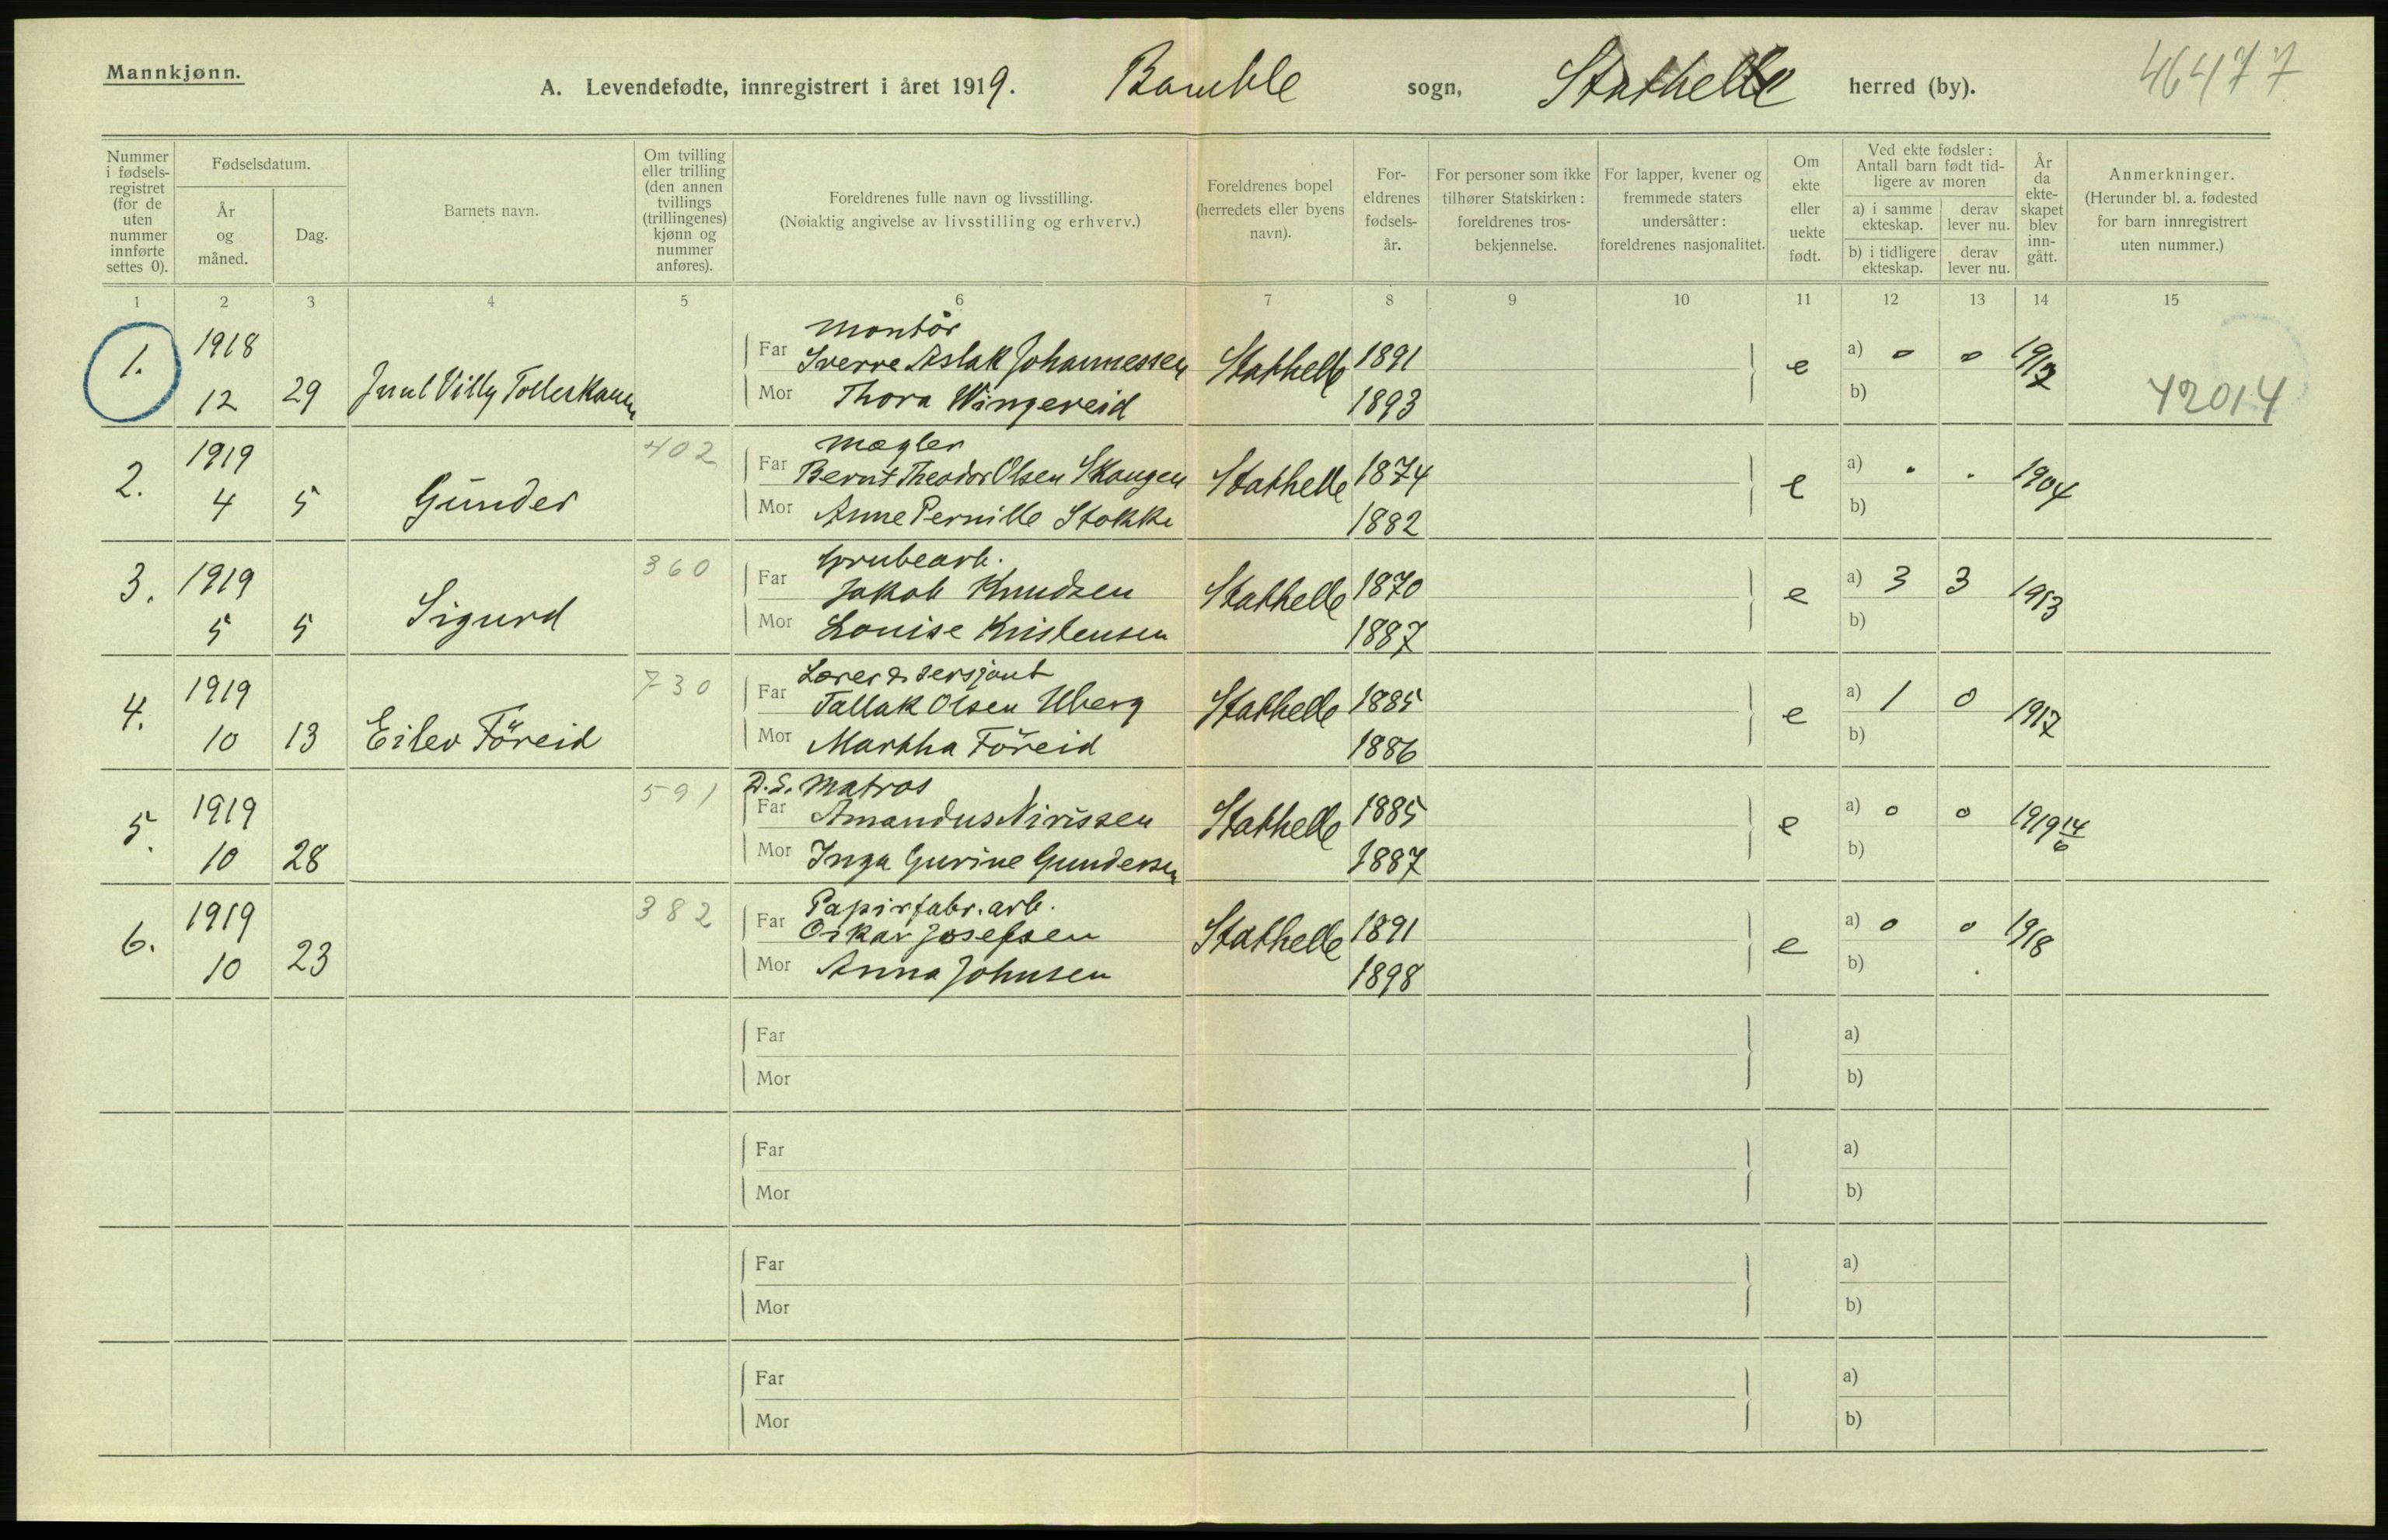 Mannkjønn.
A. Levendefødte, innregistrert i året 1919. Bamble sogn, Stathelle herred (by).
46477
Nummer i fødselsregistret (for de uten nummer innførte settes 0).
Fødselsdatum.
År og måned.
Dag.
Barnets navn.
Om tvilling eller trilling (den annen tvillings (trillingenes) kjønn og nummer anføres).
Foreldrenes fulle navn og livsstilling.
(Nøiaktig angivelse av livsstilling og erhverv.)
Foreldrenes bopel (herredets eller byens navn).
Foreldrenes fødselsår.
For personer som ikke tilhører Statskirken: foreldrenes trosbekjennelse.
For lapper, kvener og fremmede staters undersåtter: foreldrenes nasjonalitet.
Om ekte eller uekte født.
Ved ekte fødsler: Antall barn født tidligere av moren
a) i samme ekteskap.
derav lever nu.
b) i tidligere ekteskap.
derav lever nu.
År da ekteskapet blev inngått.
Anmerkninger.
(Herunder bl. a. fødested for barn innregistrert uten nummer.)
1 2 3 4 5 6 7 8 9 10 11 12 13 14 15
montör
1. 1918 Far Sverre Aslak Johannessen Stathelle 1891 e a) 0 0 1917
12 29 Juul Villy Mor Thora Wingereid 1893 b) 42014
402 mægler
2. 1919 Far Bernt Theodor Olsen Skaugen Stathelle 1874 e a) . . 1904
4 5 Gunder Mor Anne Pernille Stokke 1882 b)
360 Grubearb.
3. 1919 Far Jakob Knudsen Stathelle 1870 e a) 3 3 1913
5 5 Sigurd Mor Louise Kristensen 1887 b)
730 Lærer & sersjant
4. 1919 Far Tallak Olsen Uberg Stathelle 1885 e a) 1 0 1917
10 13 Eilev Föreid Mor Martha Föreid 1886 b)
591 D.S. matros
5. 1919 Far Amandus Nirissen Stathelle 1885 e a) 0 0 1919 14/6
10 28 Mor Inga Gurine Gundersen 1887 b)
382 Papirfabr. arb.
6. 1919 Far Oskar Josefsen Stathelle 1891 e a) 0 0 1918
10 23 Mor Anna Johnsen 1898 b)
Far a)
Mor b)
Far a)
Mor b)
Far a)
Mor b)
Far a)
Mor b)